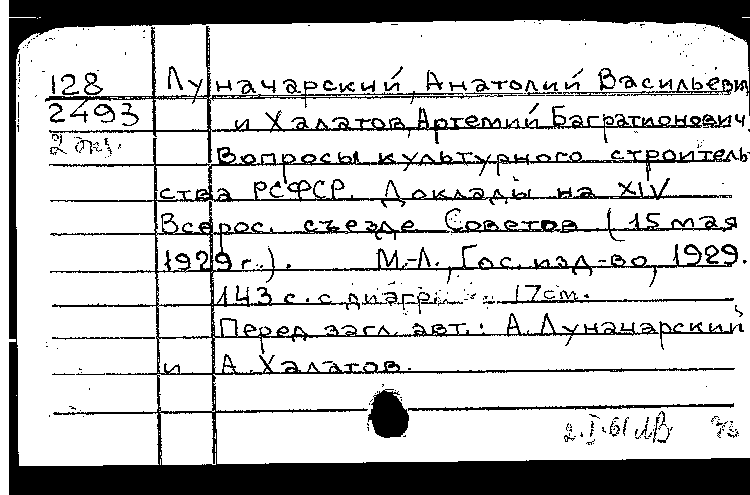 128 Луначарский, Анатолий Васильевич
2493 и Халатов, Артемий Багратионович.
2 экз. Вопросы культурного строитель-
ства РСФСР. Доклады на XIV
Всерос. съезде Советов (15 мая
1929 г.). М.-Л., Гос. изд-во, 1929.
143 с. с диагр. 17 см.
Перед загл. авт.: А. Луначарский
и А. Халатов.
2.I.61